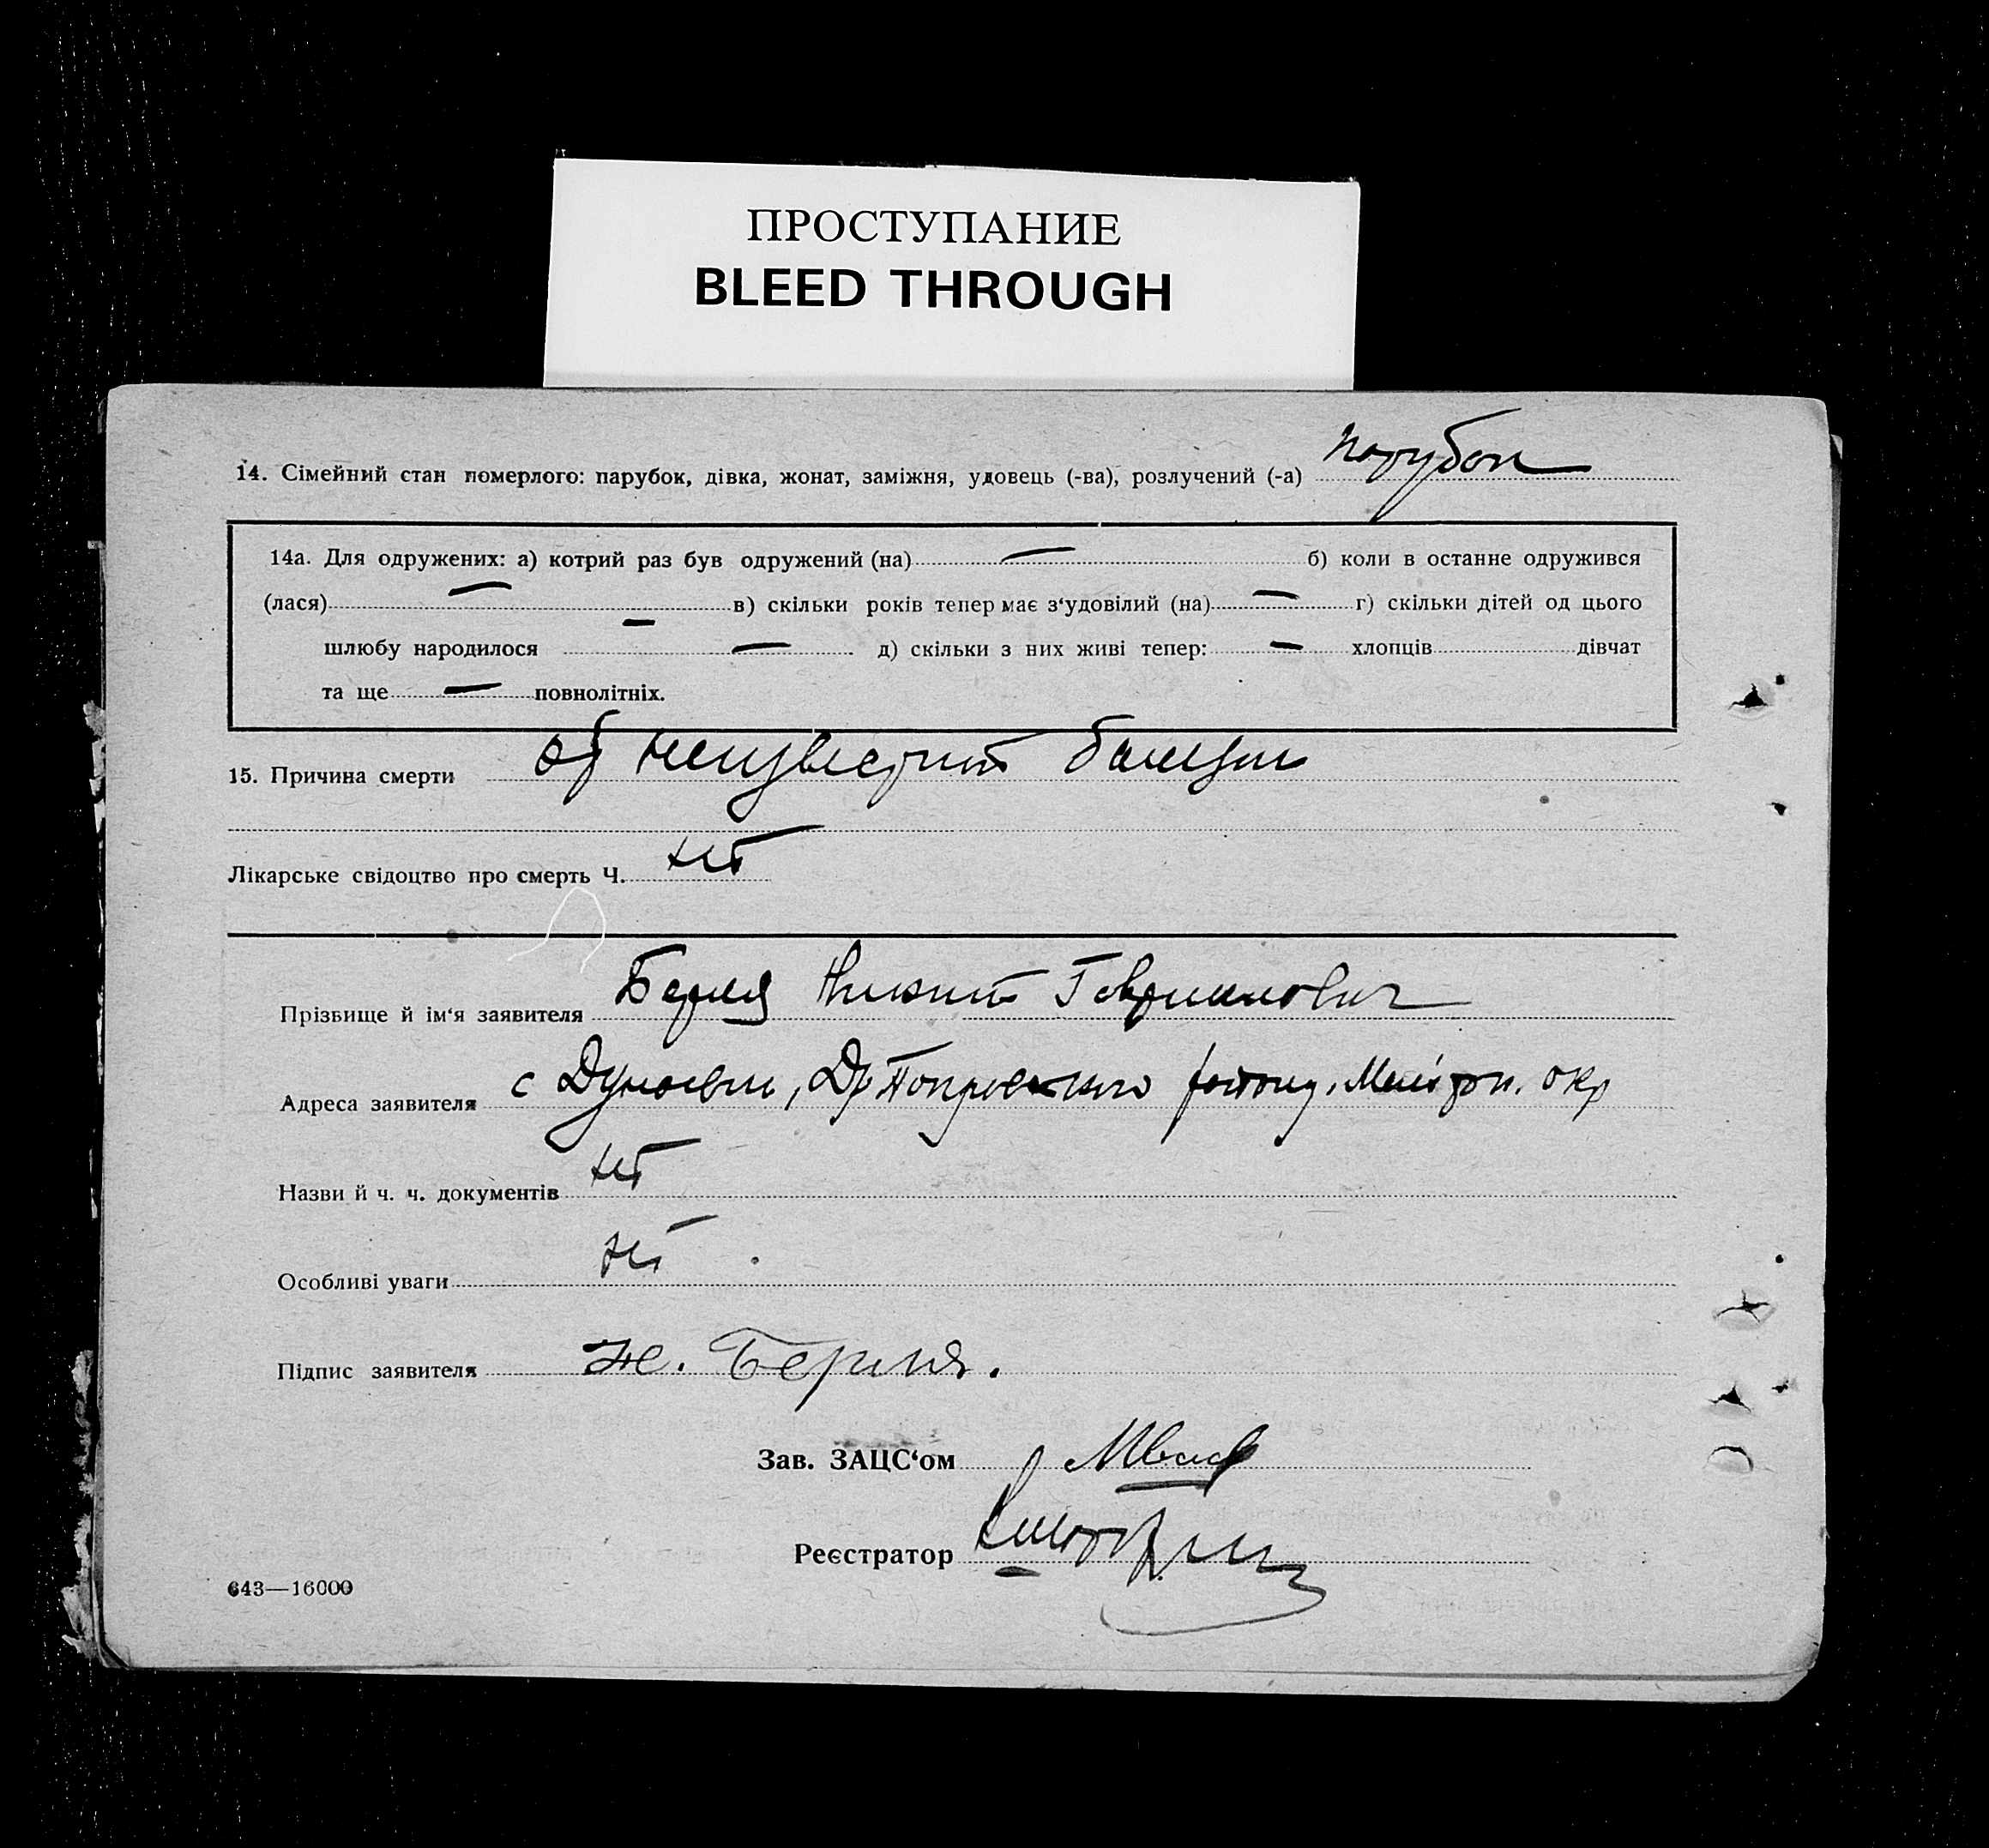 ПРОСТУПАНИЕ
BLEED THROUGH
14. Сімейний стан померлого: парубок, дівка, жонат, заміжня, удовець (-ва), розлучений (-а) парубок
14а. Для одружених: а) котрий раз був одружений (на) — б) коли в останне одружився
(лася) — в) скільки років тепер має з‘удовілий (на) — г) скільки дітей од цього
шлюбу народилося — д) скільки з них живі тепер: — хлопців дівчат
та ще — повнолітніх.
15. Причина смерти от неизвестной
Лікарське свідоцтво про смерть Ч. нет
Прізвище й ім‘я заявителя Гаврилович
Адреса заявителя с окр
Назви й ч. ч. документів нет
Особливі уваги нет
Підпис заявителя
Зав. ЗАЦС‘ом
Реєстратор
643—16000